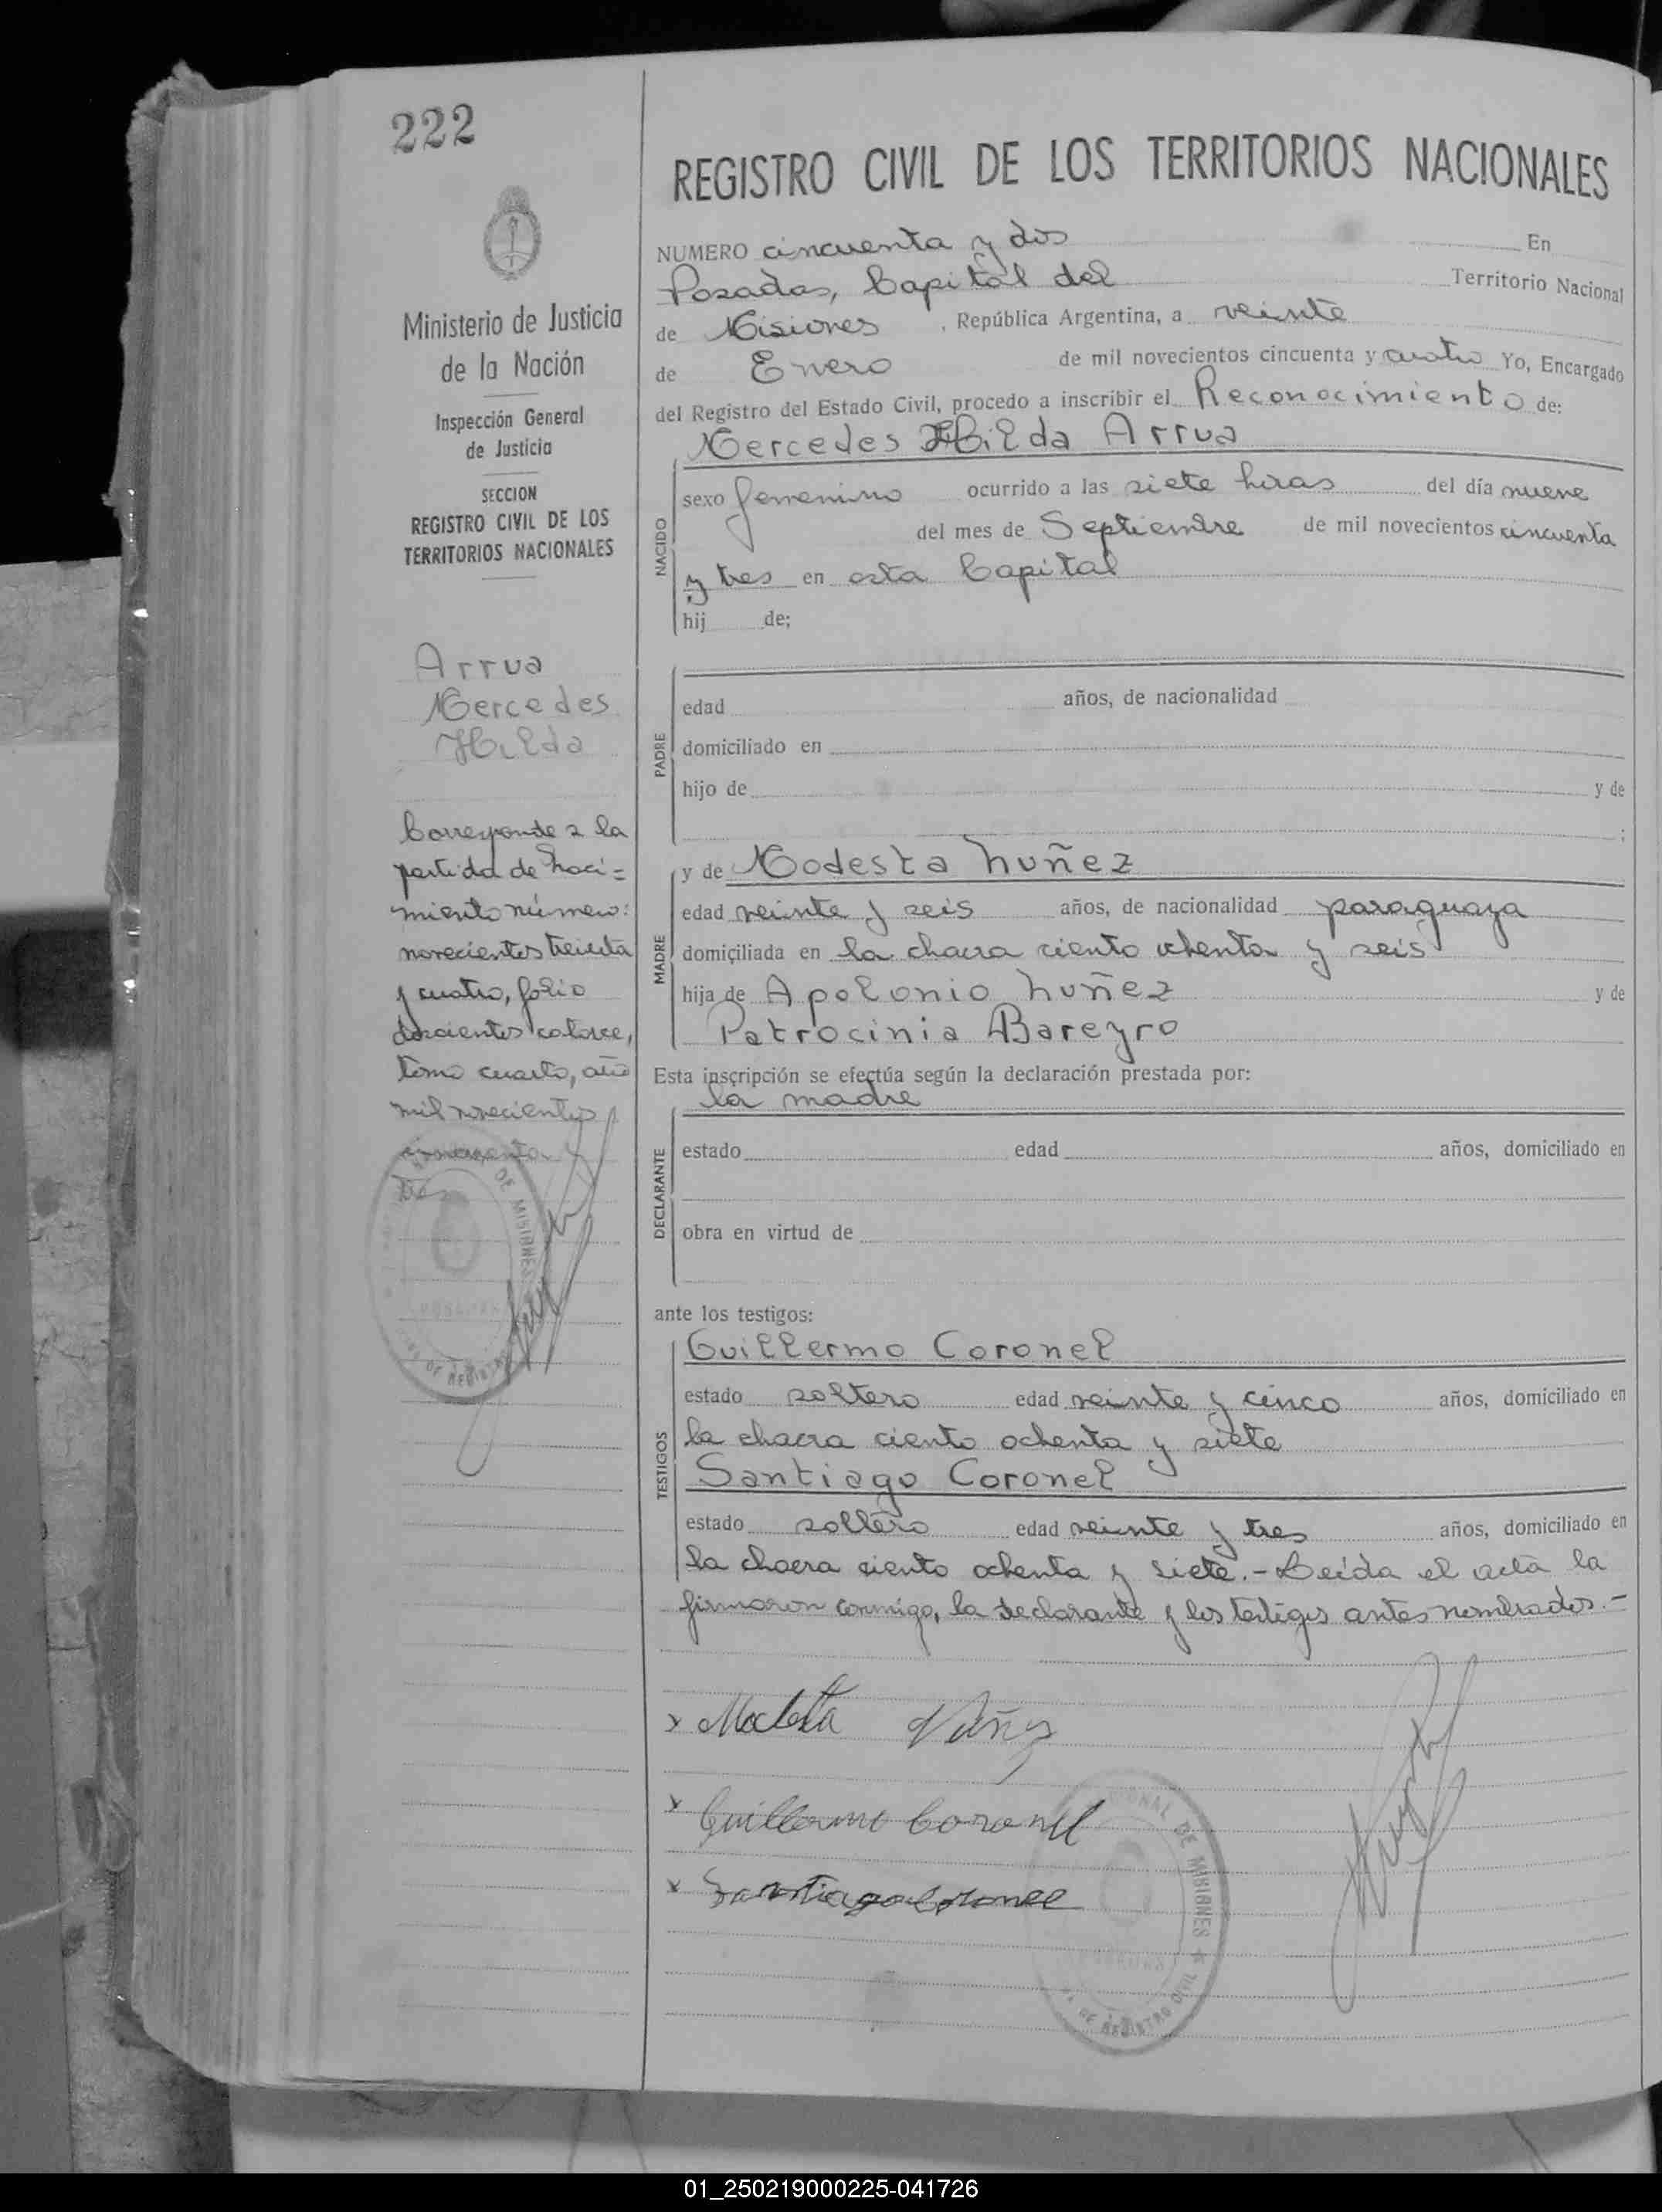 222
Ministerio de Justicia
de la Nación
Inspección General
de Justicia
SECCION
REGISTRO CIVIL DE LOS
TERRITORIOS NACIONALES
Arrua
Mercedes
Hilda
Corresponde a la
partida de naci=
miento número:
novecientos treinta
y cuatro, folio
doscientos catorce,
tomo cuarto, año
mil novecientos
cincuenta y
tres
DE MISIONES
DE REGISTRO
REGISTRO CIVIL DE LOS TERRITORIOS NACIONALES
NUMERO cincuenta y dos En
Posadas, Capital del Territorio Nacional
de Misiones, República Argentina, a veinte
de Enero de mil novecientos cincuenta y cuatro Yo, Encargado
del Registro del Estado Civil, procedo a inscribir el Reconocimiento de:
Mercedes Hilda Arrua
NACIDO
sexo femenino ocurrido a las siete horas del día nueve
del mes de Septiembre de mil novecientos cincuenta
y tres en esta Capital
hij de;
PADRE
edad años, de nacionalidad
domiciliado en
hijo de y de
;
MADRE
y de Modesta Nuñez
edad veinte y seis años, de nacionalidad paraguaya
domiciliada en la chacra ciento ochenta y seis
hija de Apolonio Nuñez y de
Patrocinia Bareyro
Esta inscripción se efectúa según la declaración prestada por:
la madre
DECLARANTE
estado edad años, domiciliado en
obra en virtud de
ante los testigos:
TESTIGOS
Guillermo Coronel
estado soltero edad veinte y cinco años, domiciliado en
la chacra ciento ochenta y siete
Santiago Coronel
estado soltero edad veinte y tres años, domiciliado en
la chacra ciento ochenta y siete.- Leída el acta la
firmaron conmigo, la declarante y los testigos antes nombrados.-
x Modesta Núñez
x Guillermo Coronel
x Santiago Coronel
DE MISIONES
DE REGISTRO CIVIL
01_250219000225-041726